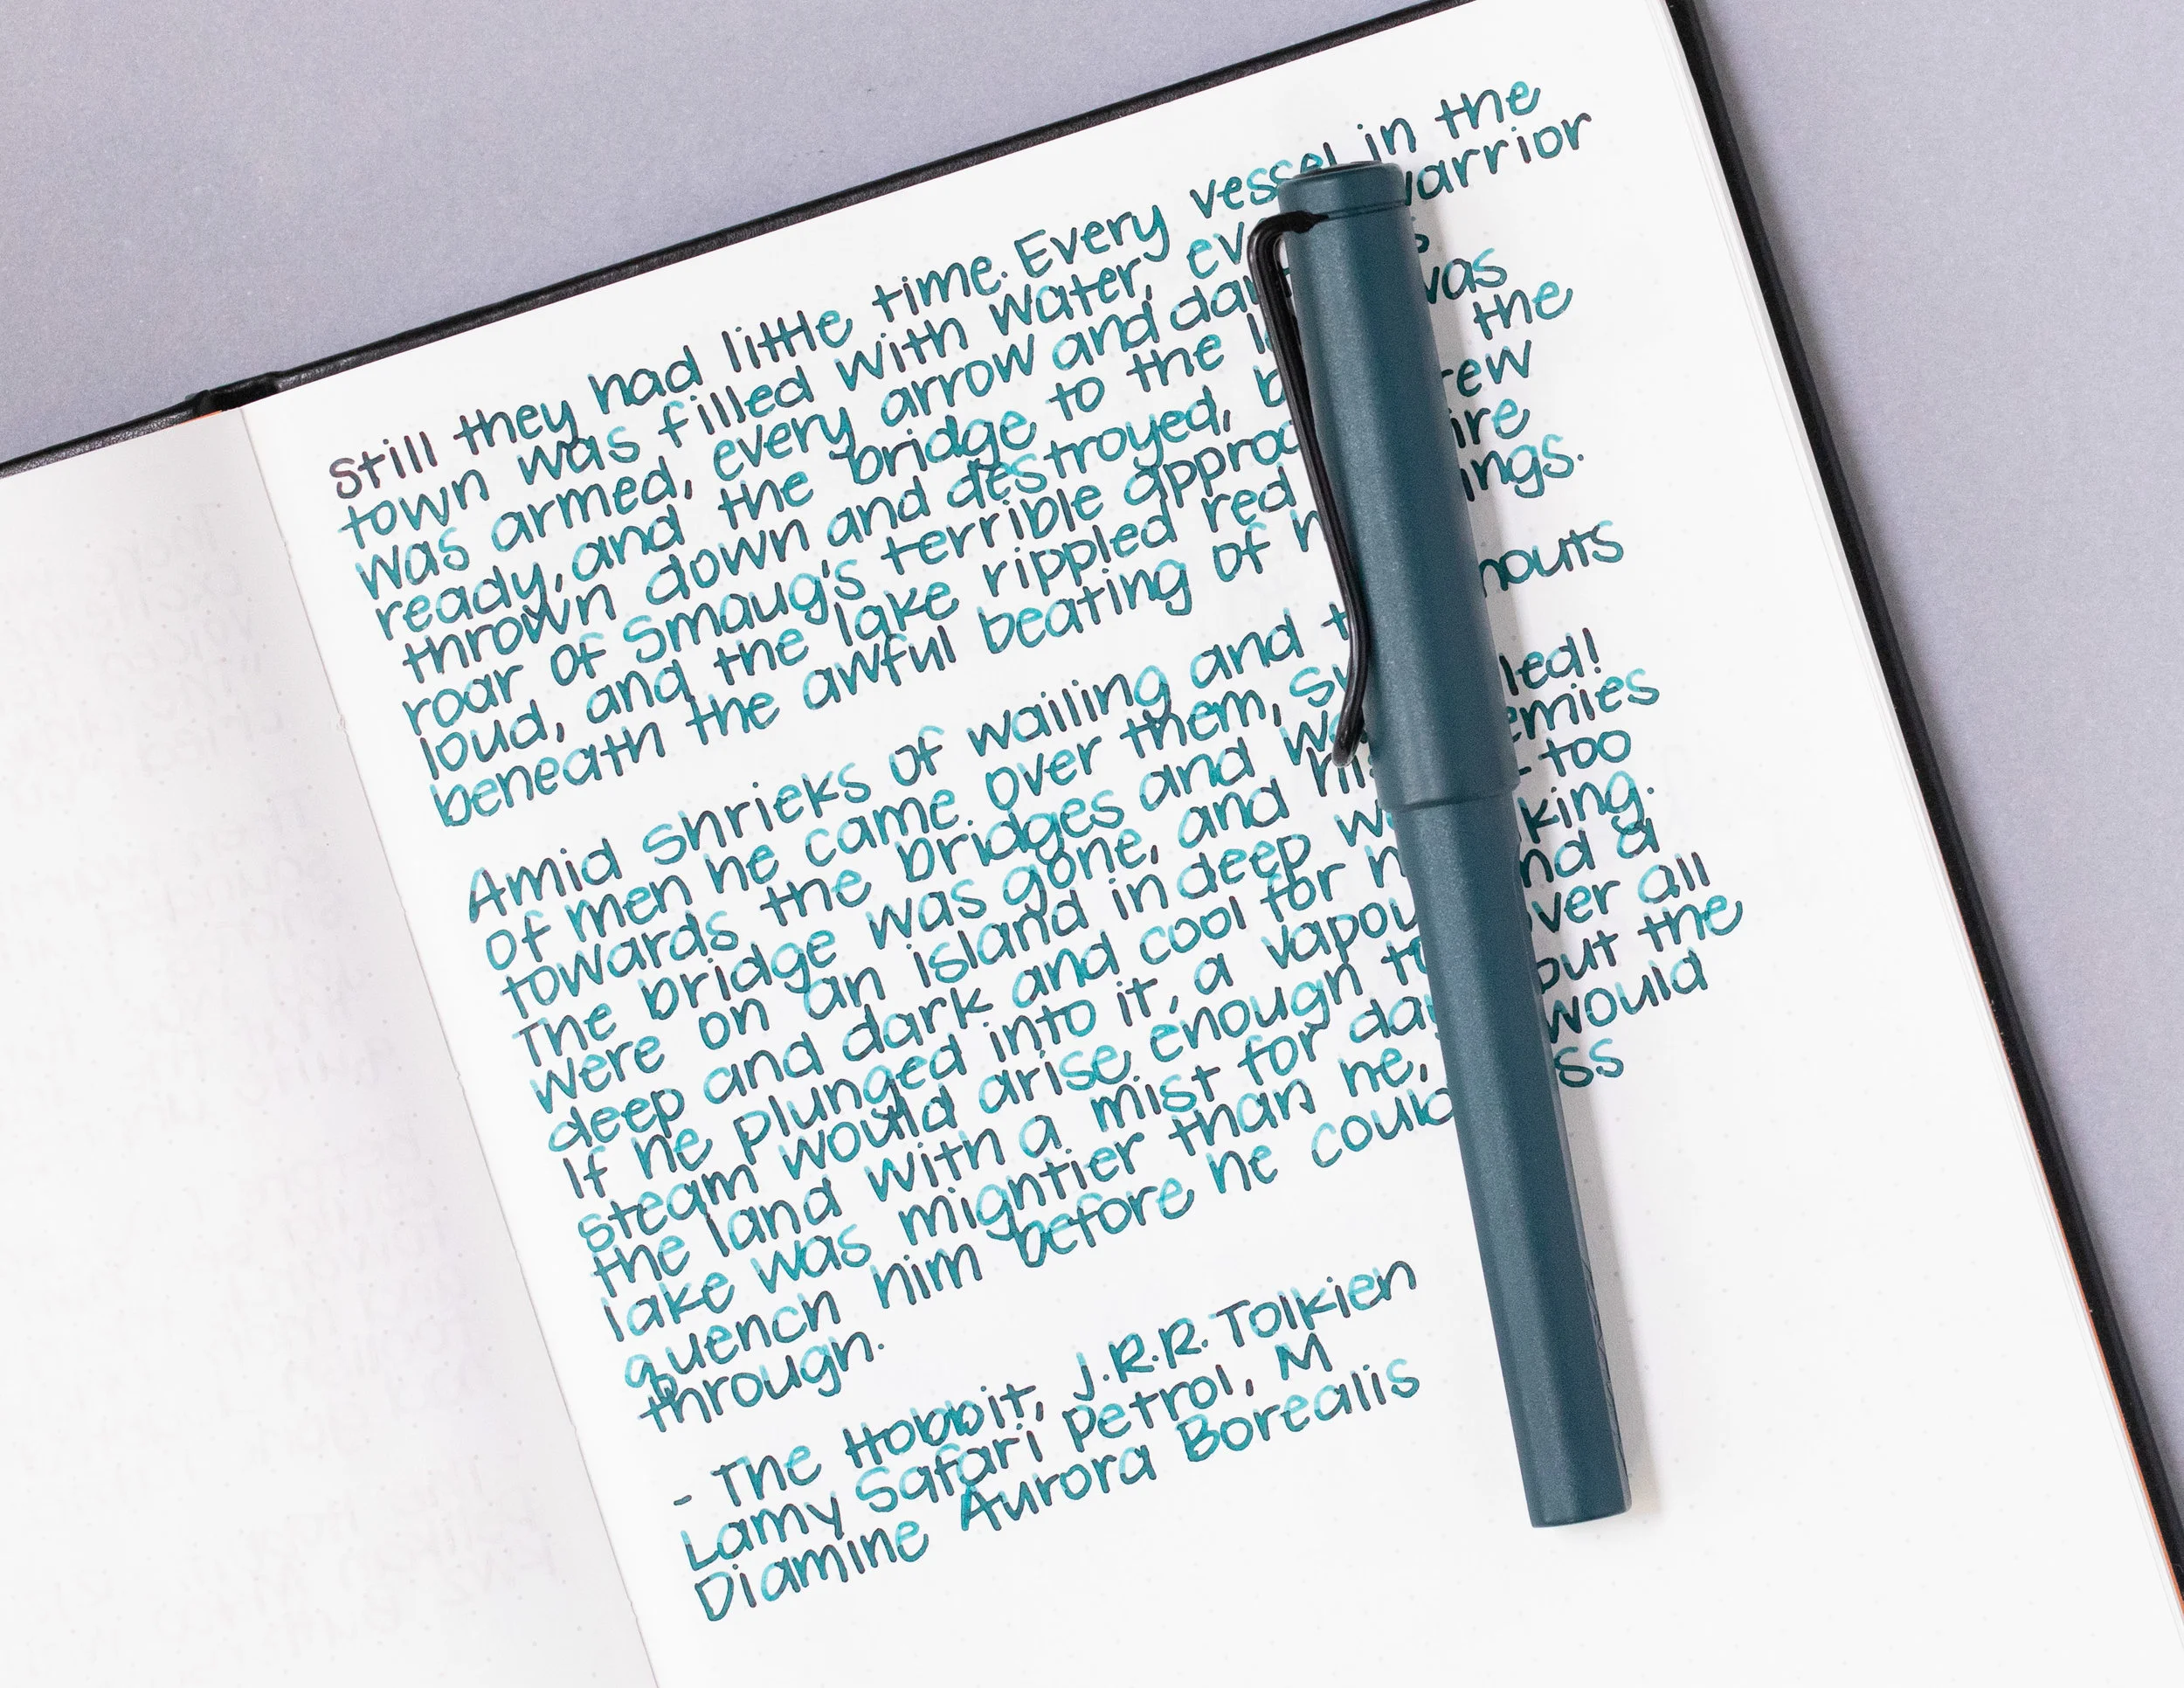 Still they had little time. Every vessel in the
town was filled with water, every warrior
was armed, every arrow and dart was
ready, and the bridge to the land was
thrown down and destroyed, before the
roar of Smaug's terrible approach grew
loud, and the lake rippled red as fire
beneath the awful beating of his wings.
Amid shrieks of wailing and the shouts
of men he came over them, swept
towards the bridges and was foiled!
The bridge was gone, and his enemies
were on an island in deep water-too
deep and dark and cool for his liking.
If he plunged into it, a vapour and a
steam would arise enough to cover all
the land with a mist for days, but the
lake was mightier than he, it would
quench him before he could pass
through.
- The Hobbit, J.R.R. Tolkien
Lamy Safari Petrol, M
Diamine Aurora Borealis